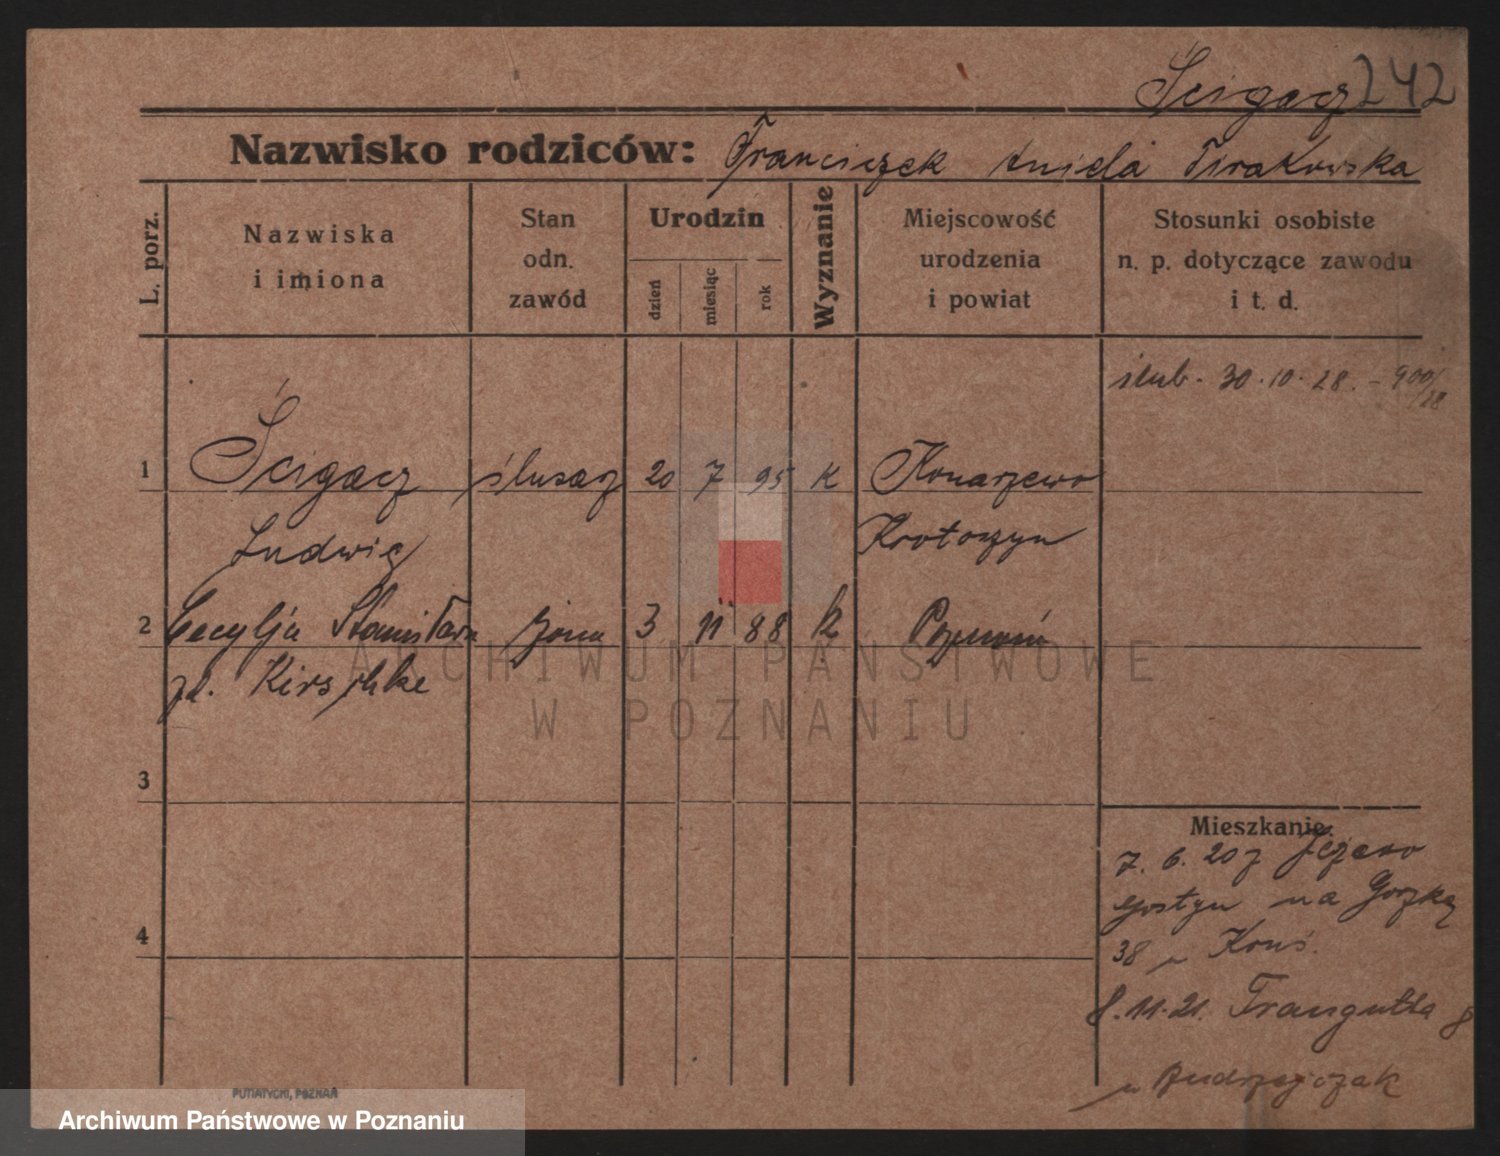 Ścigacz 242
Nazwisko rodziców: Franciszek Aniela Tirakowska
L. porz.
Nazwiska
i imiona
Stan
odn.
zawód
Urodzin
dzień
miesiąc
rok
Wyznanie
Miejscowość
urodzenia
i powiat
Stosunki osobiste
n. p. dotyczące zawodu
i t. d.
ślub. 30.10.28. - 900/28
1 Ścigacz ślusarz 20 7 95 k Konarzewo
Ludwig Krotoszyn
2 Cecylja Stanisława żona 3 11 88 k Poznań
zd. Kirschke
ARCHIWUM PAŃSTWOWE
W POZNANIU
3
4
Mieszkanie:
7. 6. 20 z Jeżewo
Gostyn na Gorzką
38 u
8.11.21. Traugutta 8
u Andrzejczak
PUTIATYCKI, POZNAŃ
Archiwum Państwowe w Poznaniu